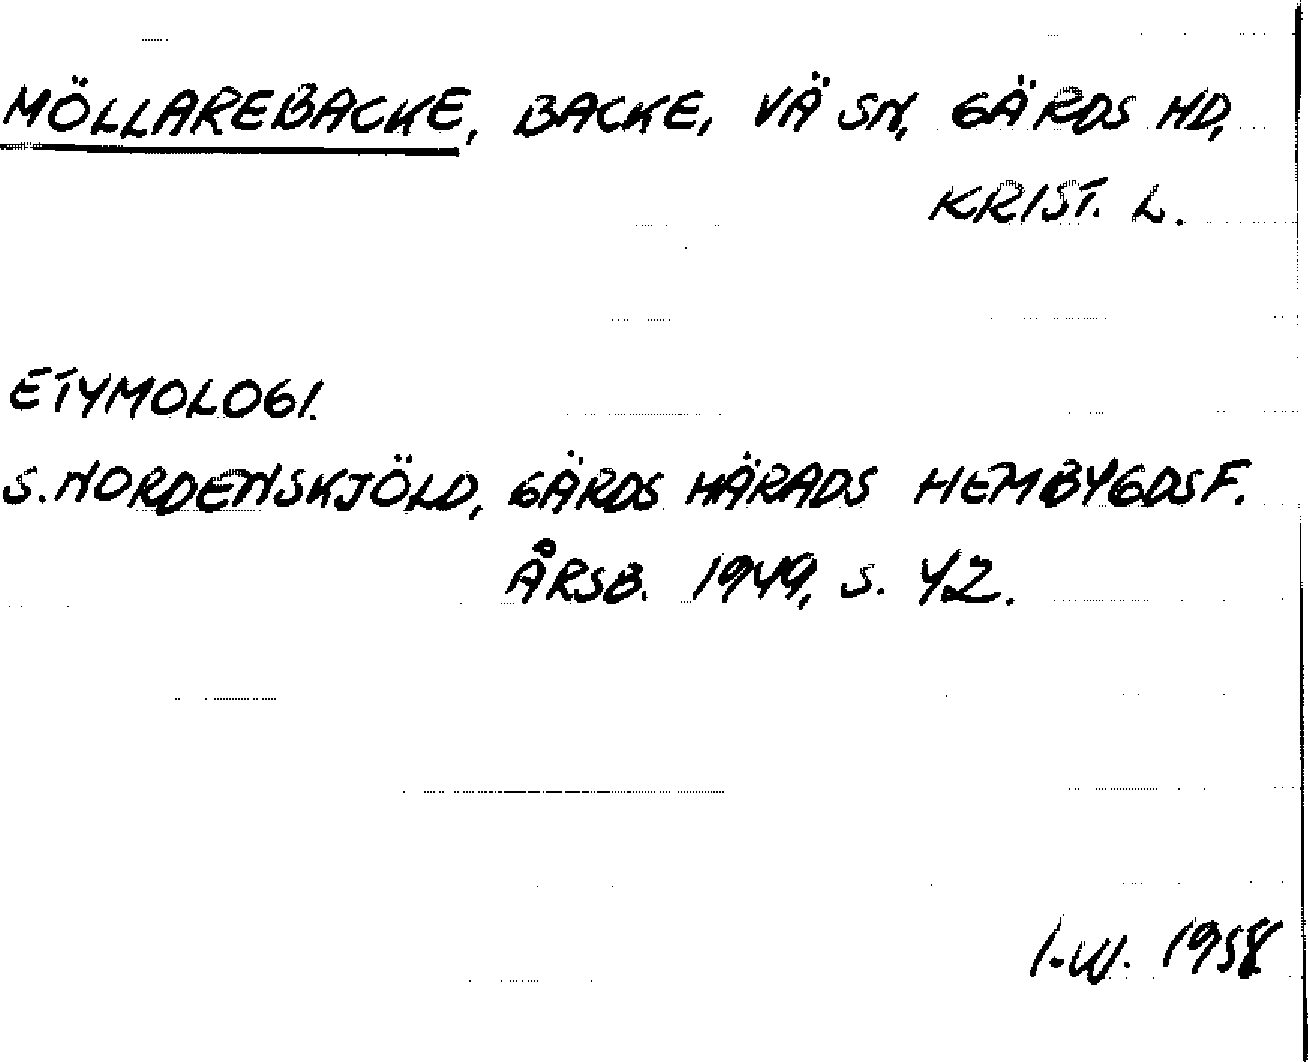 MÖLLAREBACKE, BACKE, VÄ SN, GÄRDS HD,
KRIST. L.
ETYMOLOGI.
S. NORDENSKJÖLD, GÄRDS HÄRADS HEMBYGDSF.
ÅRSB. 1949, S. 42.
I.W. 1958